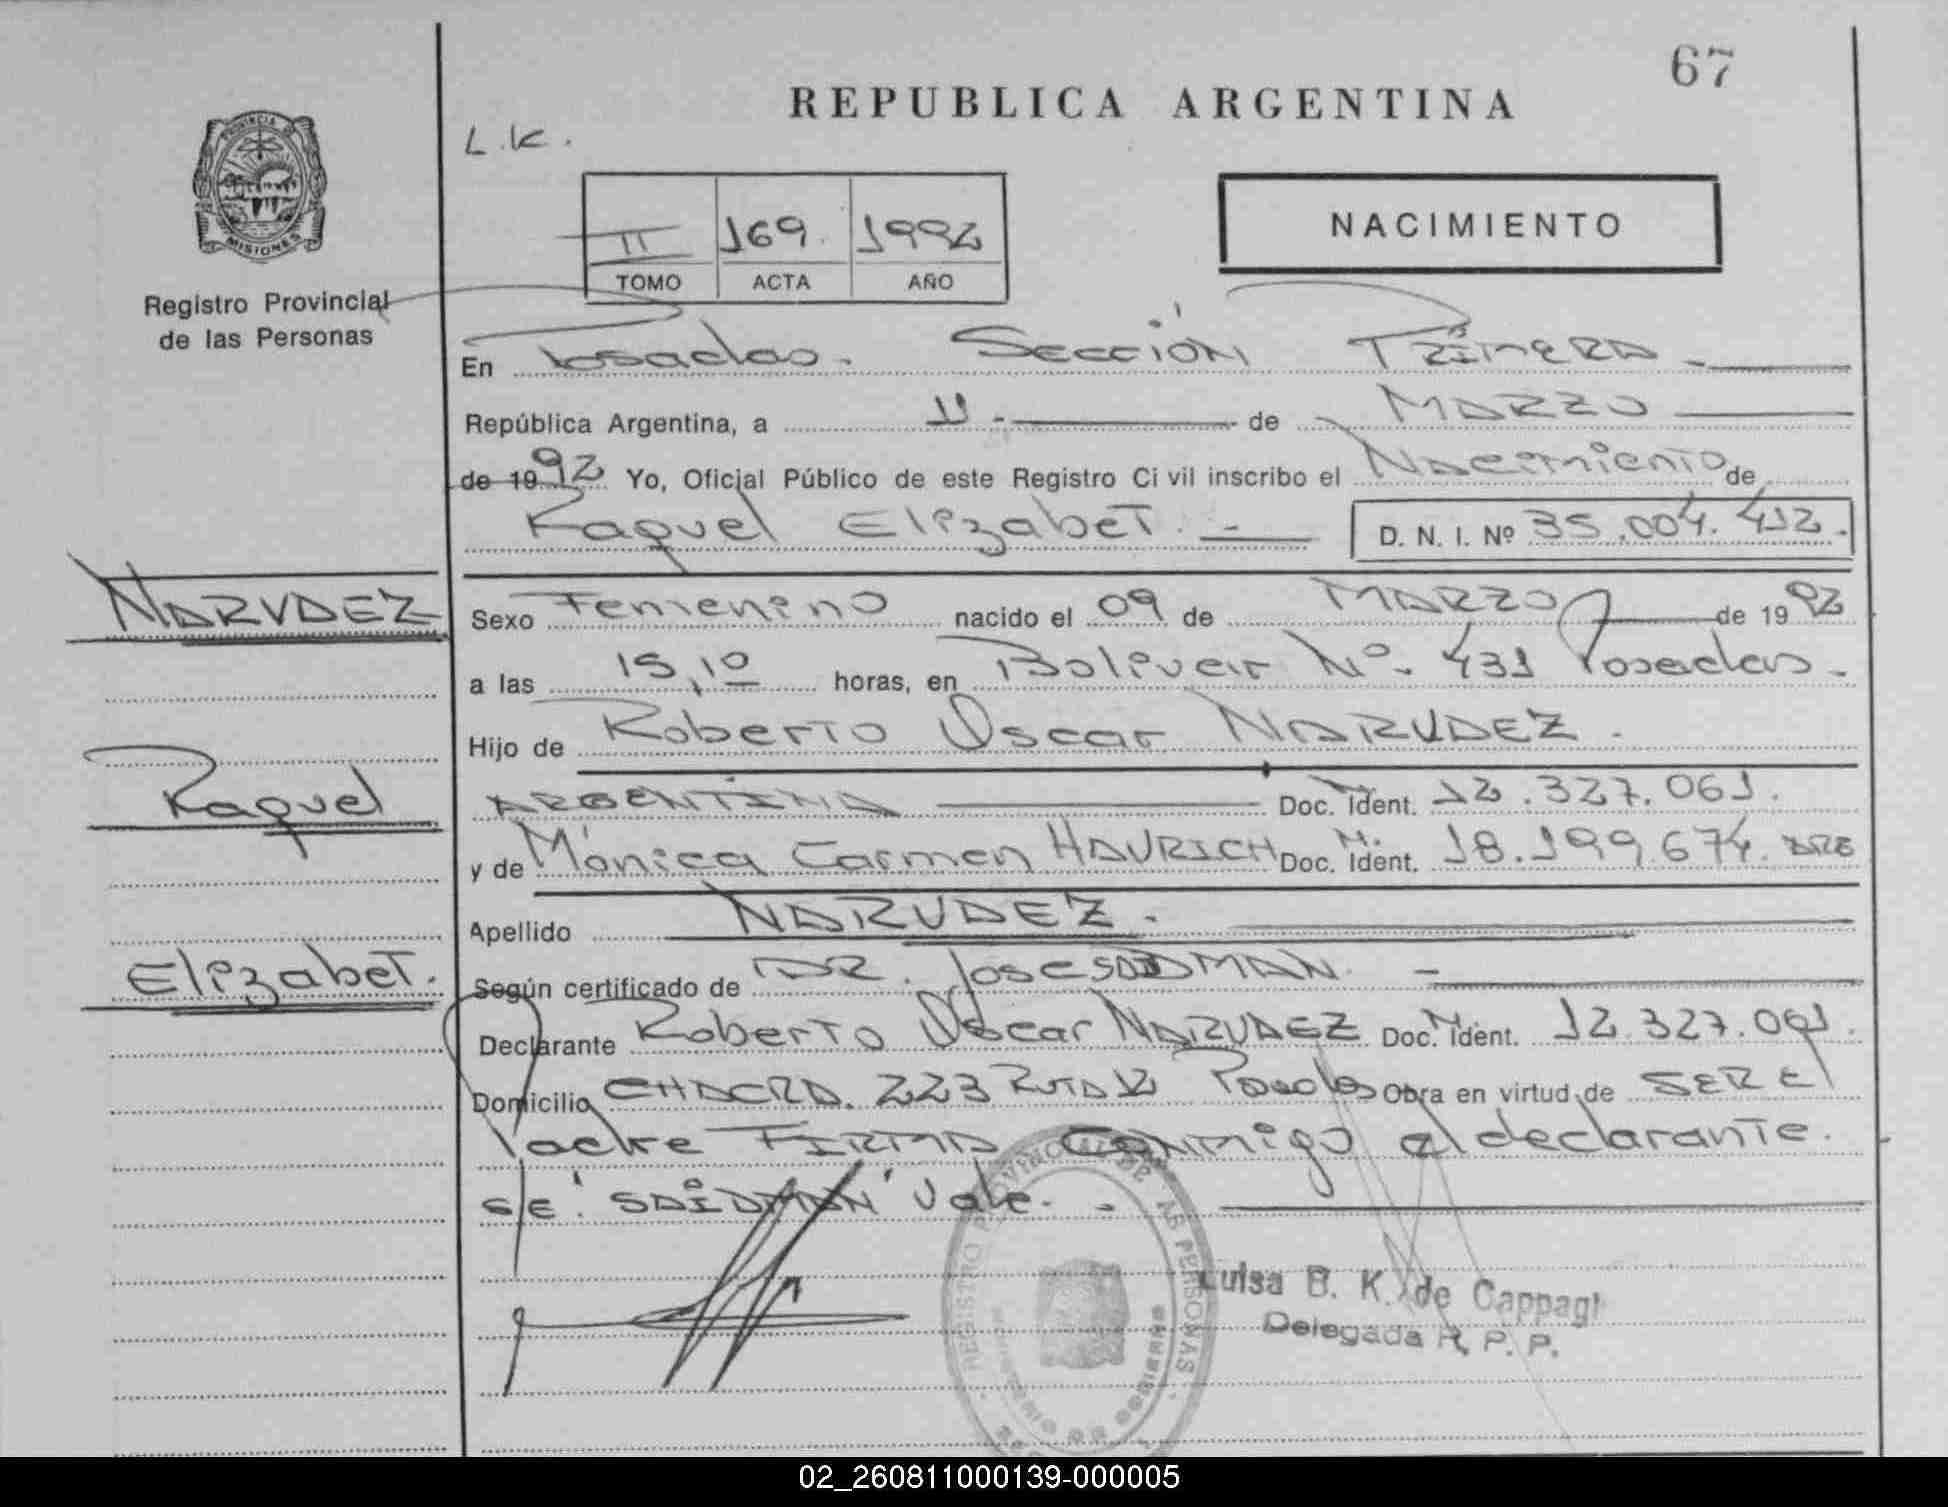 67
REPUBLICA ARGENTINA
L.K.
PROVINCIA DE
MISIONES
Registro Provincial
de las Personas
II 169. 1992
TOMO ACTA AÑO
NACIMIENTO
En Posadas. Sección Primera
República Argentina, a 11 de MARZO
de 1992 Yo, Oficial Público de este Registro Civil inscribo el Nacimiento de
Raquel Elizabet. D. N. I. Nº 35.004.412.
NARVAEZ
Sexo Femenino nacido el 09 de MARZO de 1992
a las 15,10 horas, en Bolivar Nº. 431 Posadas.
Hijo de Roberto Oscar NARVAEZ.
Raquel
ARGENTINA Doc. Ident. 12.327.061.
y de Mónica Carmen HAURICH Doc. M. Ident. 18.199.674. ARG
Apellido NARVAEZ.
Elizabet.
Según certificado de DR. Jose SAIDMAN.
Declarante Roberto Oscar NARVAEZ Doc. M. Ident. 12.327.061.
Domicilio CHACRA. 223 Ruta 12 Posadas Obra en virtud de SER el
Padre FIRMA Conmigo el declarante.
S/E. "SAIDMAN" Vale.
REGISTRO PROVINCIAL DE LAS PERSONAS
MINISTERIO DE GOBIERNO
Luisa B. K. de Cappagi
Delegada R. P. P.
02_260811000139-000005